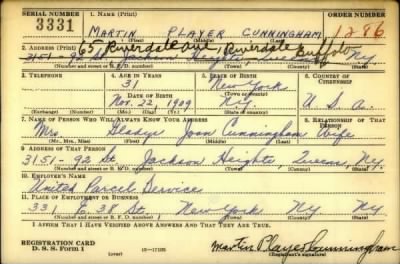 SERIAL NUMBER 1. NAME (Print) ORDER NUMBER
3331 MARTIN PLAYER CUNNINGHAM 1286
(First) (Middle) (Last)
65 Riverdale ave, Riverdale Buffalo
2. ADDRESS (Print)
3151-92 St. Jackson Heights, Queens N.Y.
(Number and street or R. F. D. number) (Town) (County) (State)
3. TELEPHONE 4. AGE IN YEARS 5. PLACE OF BIRTH 6. COUNTRY OF CITIZENSHIP
31 New York
DATE OF BIRTH (Town or county)
Nov. 22, 1909 N.Y. U. S. A.
(Exchange) (Number) (Mo.) (Day) (Yr.) (State or country)
7. NAME OF PERSON WHO WILL ALWAYS KNOW YOUR ADDRESS 8. RELATIONSHIP OF THAT PERSON
Mrs. Gladys Joan Cunningham Wife
(Mr., Mrs., Miss) (First) (Middle) (Last)
9. ADDRESS OF THAT PERSON
3151-92 St. Jackson Heights, Queens, N.Y.
(Number and street or R. F. D. number) (Town) (County) (State)
10. EMPLOYER'S NAME
United Parcel Service
11. PLACE OF EMPLOYMENT OR BUSINESS
331 E. 38 St. New York NY NY
(Number and street or R. F. D. number) (Town) (County) (State)
I AFFIRM THAT I HAVE VERIFIED ABOVE ANSWERS AND THAT THEY ARE TRUE.
REGISTRATION CARD
D. S. S. Form 1 (over) 16-17105 Martin Player Cunningham
(Registrant's signature)